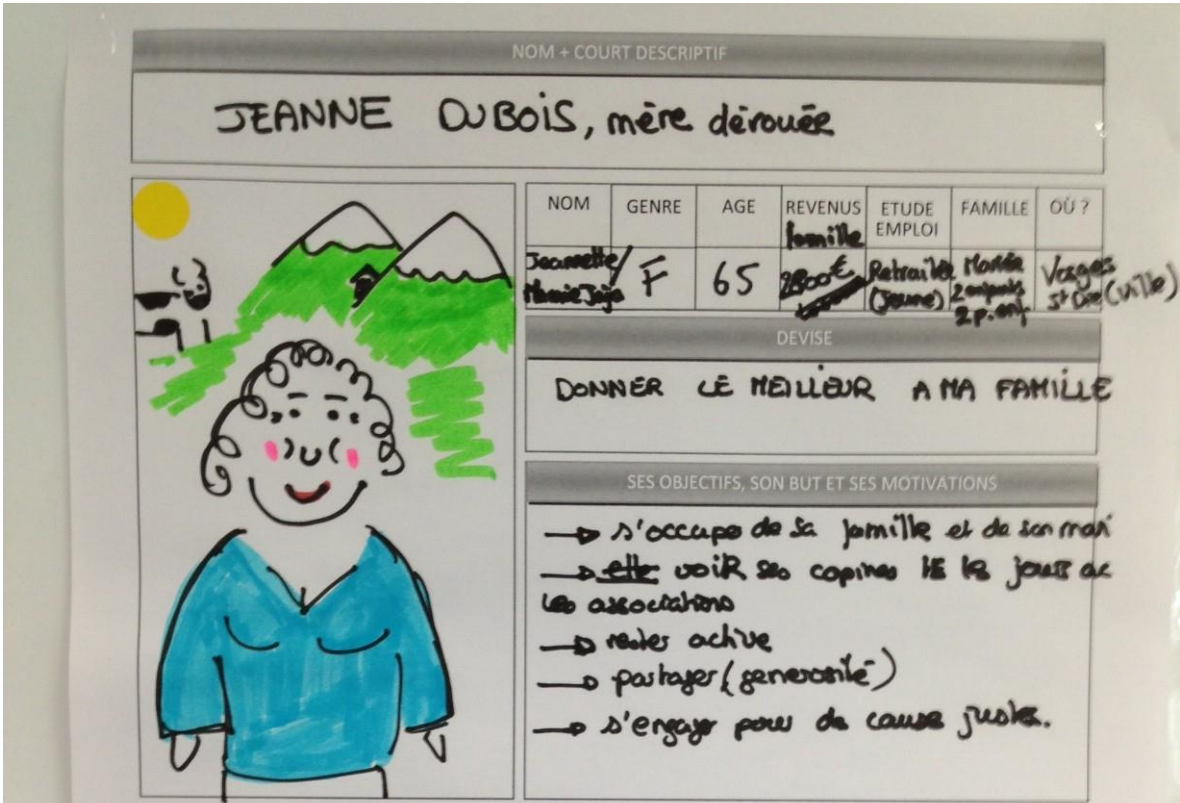 NOM + COURT DESCRIPTIF
JEANNE DUBOIS, mère dévouée
NOM GENRE AGE REVENUS ETUDE EMPLOI FAMILLE OÙ ?
famille
Jeannette / Mamie Jojo F 65 2800€ Retraitée (Jeune) Mariée 2 enfants 2 p. enf Vosges St Die (ville)
DEVISE
DONNER LE MEILLEUR A MA FAMILLE
SES OBJECTIFS, SON BUT ET SES MOTIVATIONS
→ s'occupe de sa famille et de son mari
→ voiR ses copines jours
les associations
→ rester active
→ partager (generosité)
→ s'engager pour de cause justes.